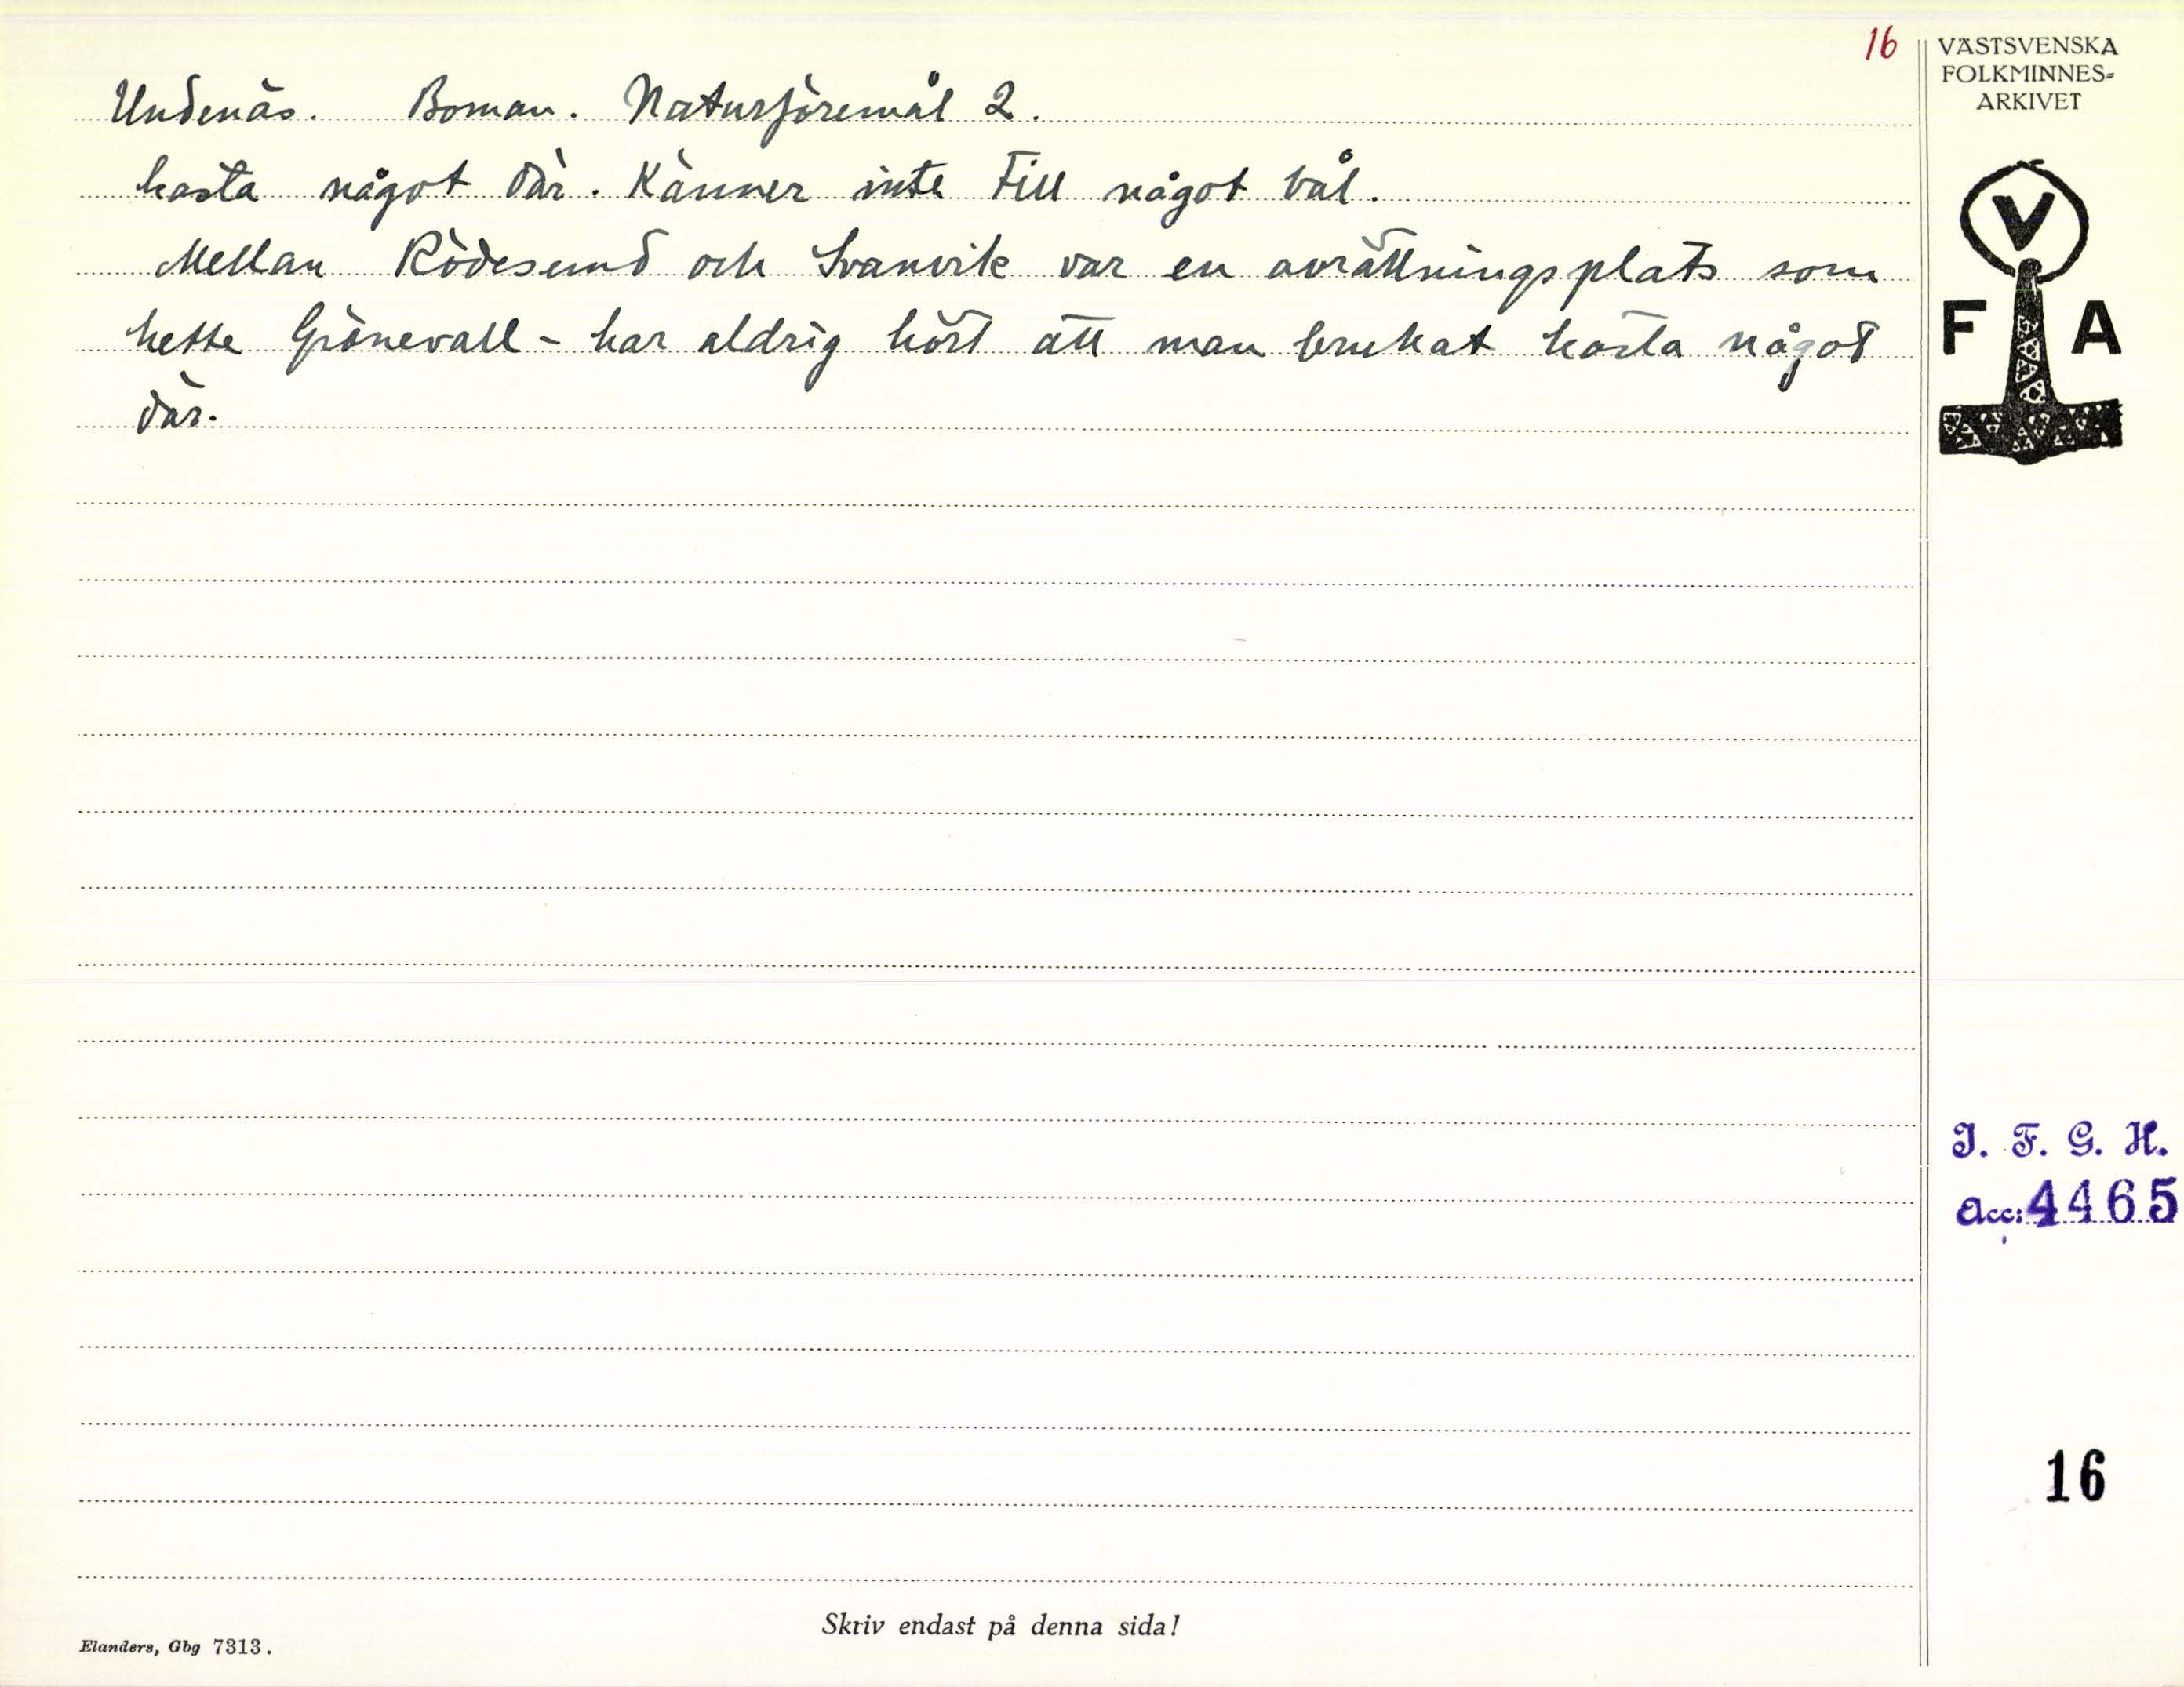 16
Undenäs. Boman. Naturföremål 2.
kasta något där. Känner inte till något vål.
Mellan Rödesund och Svanvik var en avrättningsplats som
hette Grönevall - har aldrig hört att man brukat kasta något
där.
VÄSTSVENSKA
FOLKMINNES=
ARKIVET
V
F A
I. F. G. H.
Acc: 4465
16
Skriv endast på denna sida!
Elanders, Gbg 7313.